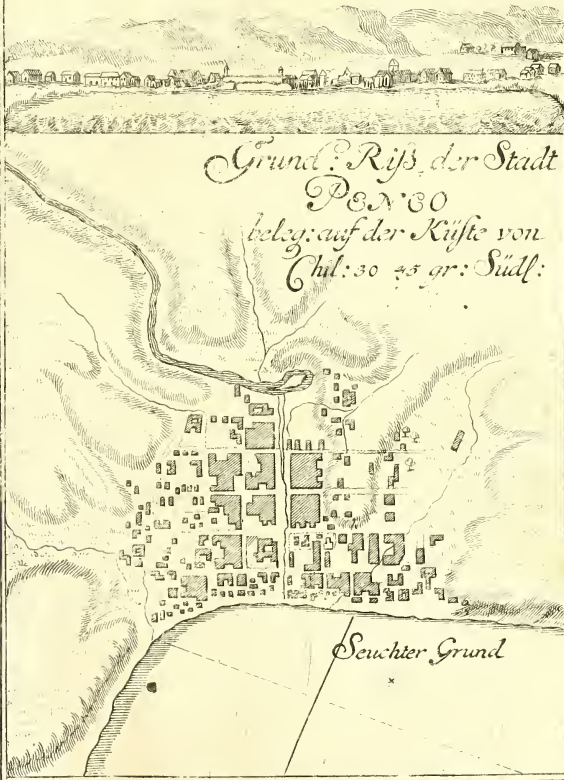 Grund: Riß der Stadt
PENCO
beleg: auf der Küste von
Chil: 30 45 gr: Südl:
Seuchter Grund